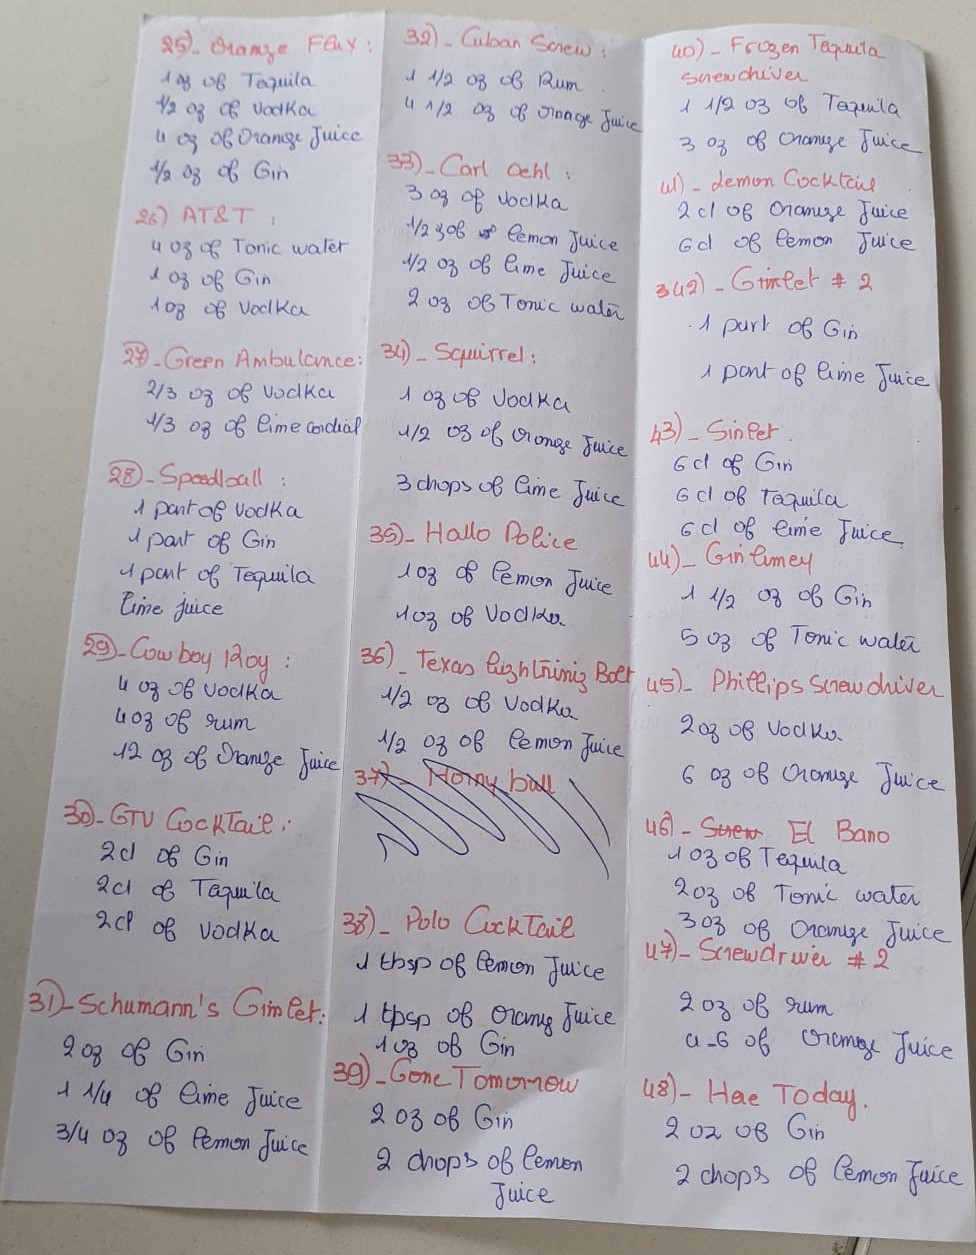 25)- Orange Flux :
1 oz of Tequila
1/2 oz of Vodka
4 oz of Orange Juice
1/2 oz of Gin
26) AT&T :
4 oz of Tonic water
1 oz of Gin
1 oz of Vodka
27)-Green Ambulance:
2/3 oz of Vodka
1/3 oz of lime cordial
28)-Speedball :
1 part of Vodka
1 part of Gin
1 part of Tequila
lime juice
29)-Cowboy Roy :
4 oz of Vodka
4 oz of rum
12 oz of Orange Juice
30)-GTV CockTail :
2cl of Gin
2cl of Tequila
2cl of Vodka
31)-Schumann's Gimlet:
2 oz of Gin
1 1/4 of lime Juice
3/4 oz of lemon Juice
32)-Cuban Screw :
1 1/2 oz of Rum
4 1/2 oz of orange Juice
33)-Carl Oehl :
3 oz of Vodka
1/2 z of lemon Juice
1/2 oz of lime Juice
2 oz of Tonic water
34)-Squirrel:
1 oz of Vodka
1/2 oz of Orange Juice
3 chops of lime Juice
35)-Hallo Police
1 oz of lemon Juice
1 oz of Vodka
36)-Texas lightning Bolt
1/2 oz of Vodka
1/2 oz of lemon Juice
37)- Horny bull
38)-Polo CockTail
1 tbsp of lemon Juice
1 tpsp of Orang Juice
1 oz of Gin
39)-Gone Tomorrow
2 oz of Gin
2 chops of lemon
Juice
40)-Frozen Tequila
Screwdriver
1 1/2 oz of Tequila
3 oz of orange Juice
41)-lemon Cocktail
2cl of Orange Juice
6cl of lemon Juice
342)-Gimlet # 2
1 part of Gin
1 part of lime Juice
43)-Sinlet.
6cl of Gin
6cl of Tequila
6cl of lime Juice
44)-Gin limey
1 1/2 oz of Gin
5 oz of Tonic water
45)-Phillips Screwdriver
2 oz of Vodka
6 oz of Orange Juice
46)-Screw El Bano
1 oz of Tequila
2 oz of Tonic water
3 oz of Orange Juice
47)-Screwdriver # 2
2 oz of rum
4-6 of orange Juice
48)-Hae Today.
2 oz of Gin
2 chops of lemon Juice